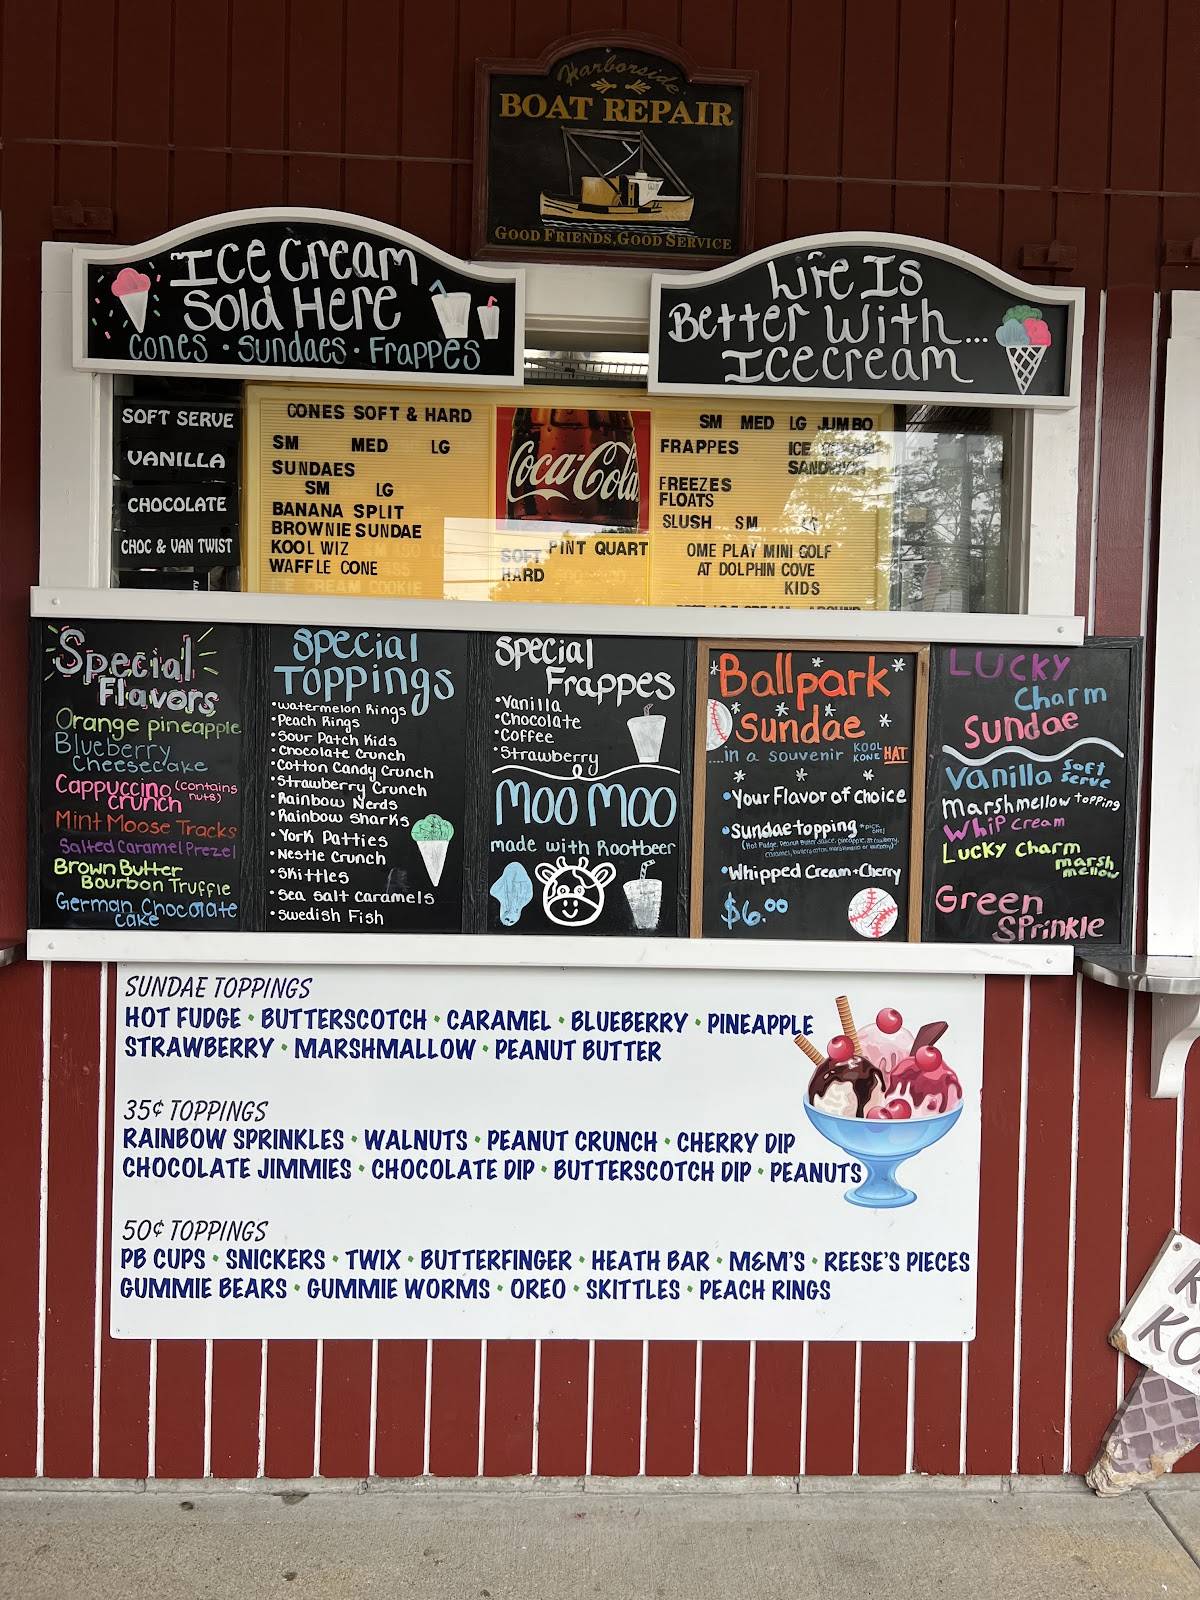 Harborside
BOAT REPAIR
GOOD FRIENDS, GOOD SERVICE
Ice Cream
Sold Here
Cones • Sundaes • Frappes
Life Is
Better With...
Icecream
SOFT SERVE
VANILLA
CHOCOLATE
CHOC & VAN TWIST
CONES SOFT & HARD
SM MED LG
SUNDAES
SM LG
BANANA SPLIT
BROWNIE SUNDAE
KOOL WIZ
WAFFLE CONE
ICE CREAM COOKIE
Coca-Cola
PINT QUART
SOFT
HARD
SM MED LG JUMBO
FRAPPES ICE
SANDWICH
FREEZES
FLOATS
SLUSH SM LG
OME PLAY MINI GOLF
AT DOLPHIN COVE
KIDS
Special
Flavors
Orange pineapple
Blueberry
Cheesecake
Cappuccino (contains
crunch nuts)
Mint Moose Tracks
Salted Caramel Prezel
Brown Butter
Bourbon Truffle
German Chocolate
cake
Special
Toppings
•Watermelon Rings
•Peach Rings
•Sour Patch Kids
•Chocolate Crunch
•Cotton Candy Crunch
•Strawberry Crunch
•Rainbow Nerds
•Rainbow Sharks
•York Patties
•Nestle Crunch
•Skittles
•Sea Salt Caramels
•Swedish Fish
Special
Frappes
•Vanilla
•Chocolate
•Coffee
•Strawberry
Moo Moo
made with Rootbeer
Ballpark
Sundae
....in a souvenir KOOL KONE HAT
•Your Flavor of choice
•Sundae topping *pick one!
•Whipped Cream + Cherry
$6.00
LUCKY
Charm
Sundae
Vanilla soft serve
Marshmellow topping
Whip cream
Lucky Charm
marsh
mellow
Green
Sprinkle
SUNDAE TOPPINGS
HOT FUDGE • BUTTERSCOTCH • CARAMEL • BLUEBERRY • PINEAPPLE
STRAWBERRY • MARSHMALLOW • PEANUT BUTTER
35¢ TOPPINGS
RAINBOW SPRINKLES • WALNUTS • PEANUT CRUNCH • CHERRY DIP
CHOCOLATE JIMMIES • CHOCOLATE DIP • BUTTERSCOTCH DIP • PEANUTS
50¢ TOPPINGS
PB CUPS • SNICKERS • TWIX • BUTTERFINGER • HEATH BAR • M&M'S • REESE'S PIECES
GUMMIE BEARS • GUMMIE WORMS • OREO • SKITTLES • PEACH RINGS